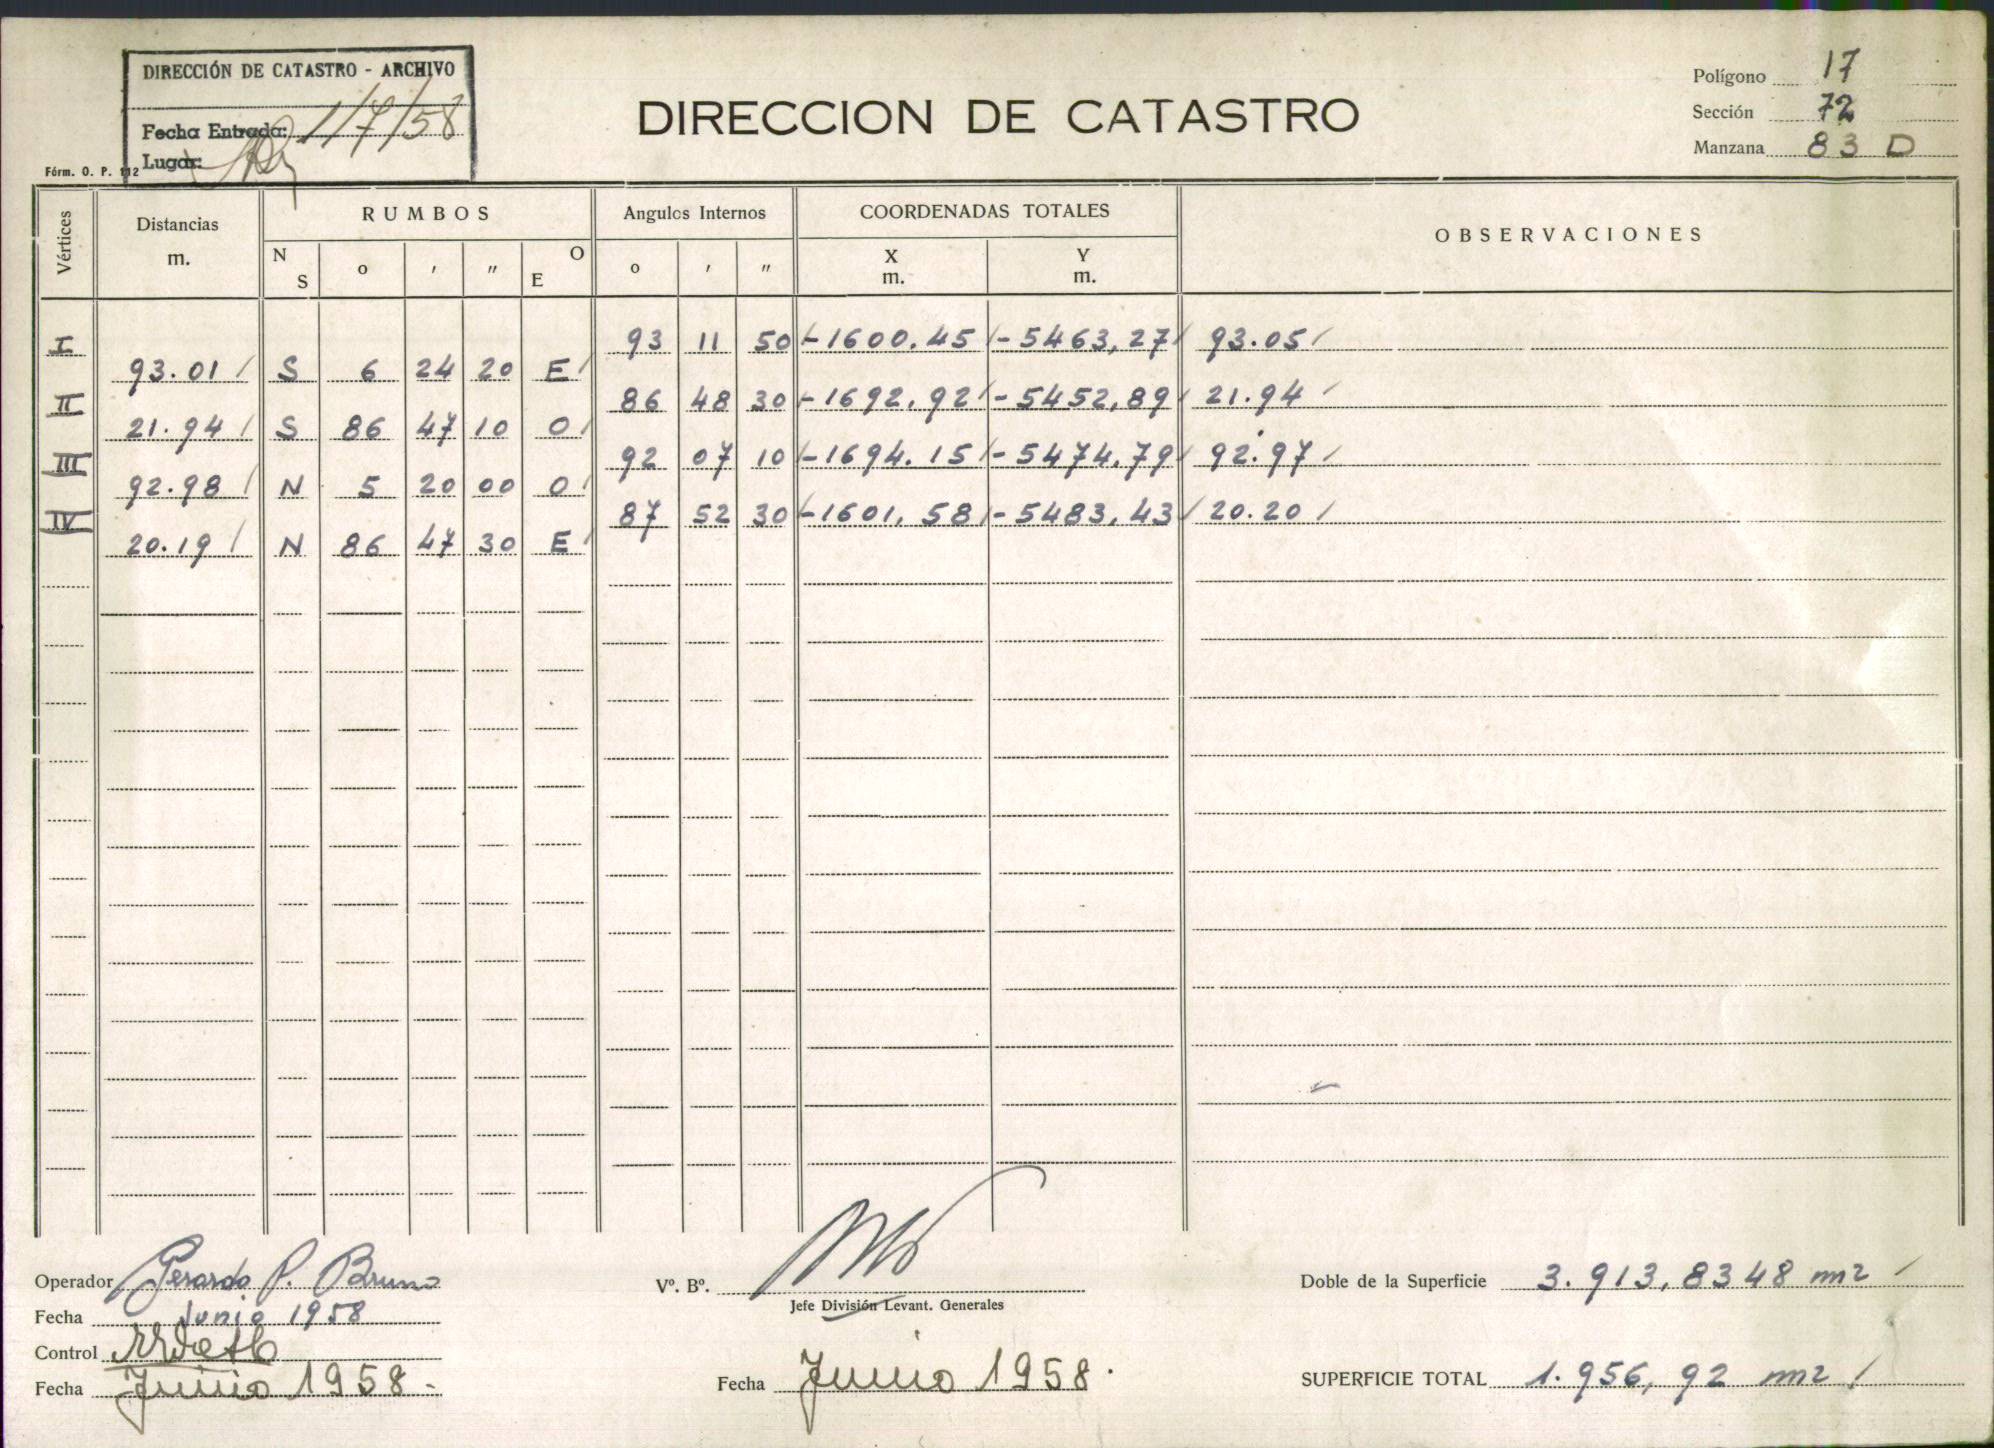 DIRECCIÓN DE CATASTRO - ARCHIVO
Fecha Entrada: 1/7/58
Lugar:
Fórm. O. P. 112
DIRECCION DE CATASTRO
Polígono 17
Sección 72
Manzana 83 D
Vértices Distancias m. RUMBOS Angulos Internos COORDENADAS TOTALES OBSERVACIONES
N S o ' " O E o ' " X m. Y m.
I 93 11 50 -1600.45 -5463,27 93.05
93.01 S 6 24 20 E
II 86 48 30 -1692,92 -5452,89 21.94
21.94 S 86 47 10 O
III 92 07 10 -1694.15 -5474,79 92.97
92.98 N 5 20 00 O
IV 87 52 30 -1601,58 -5483,43 20.20
20.19 N 86 47 30 E
Operador Gerardo P. Bruno
Fecha Junio 1958
Control
Fecha Junio 1958.-
Vº. Bº.
Jefe División Levant. Generales
Fecha Junio 1958.
Doble de la Superficie 3.913,8348 m2
SUPERFICIE TOTAL 1.956,92 m2